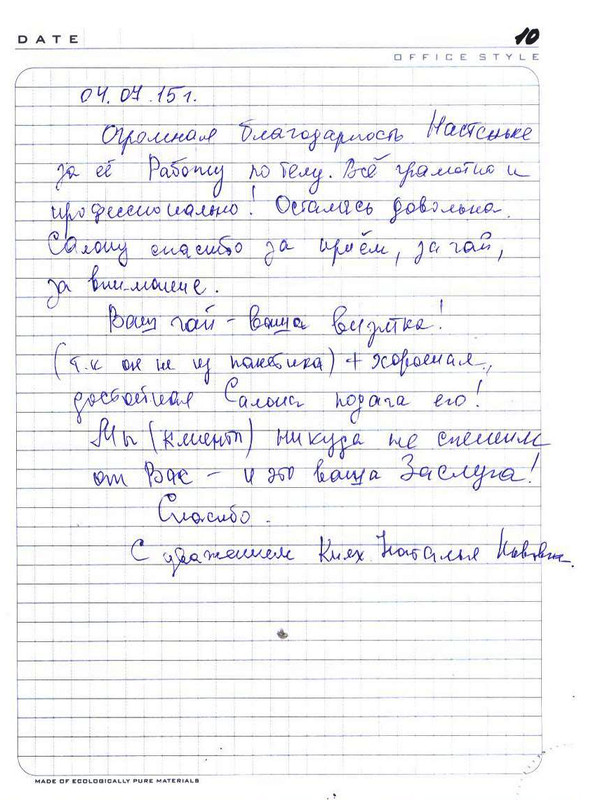 DATE
10
OFFICE STYLE
04.04.15г.
Огромная благодарность Настеньке
за её Работу по телу. Всё грамотно и
профессионально! Осталась довольна.
Салону спасибо за приём, за чай,
за внимание.
Ваш чай – ваша визитка!
(т.к он не из пакетика) + хорошая,
достойная Салона подача его!
Мы (клиенты) никуда не спешим
от Вас – и это ваша Заслуга!
Спасибо.
С уважением Наталья
MADE OF ECOLOGICALLY PURE MATERIALS